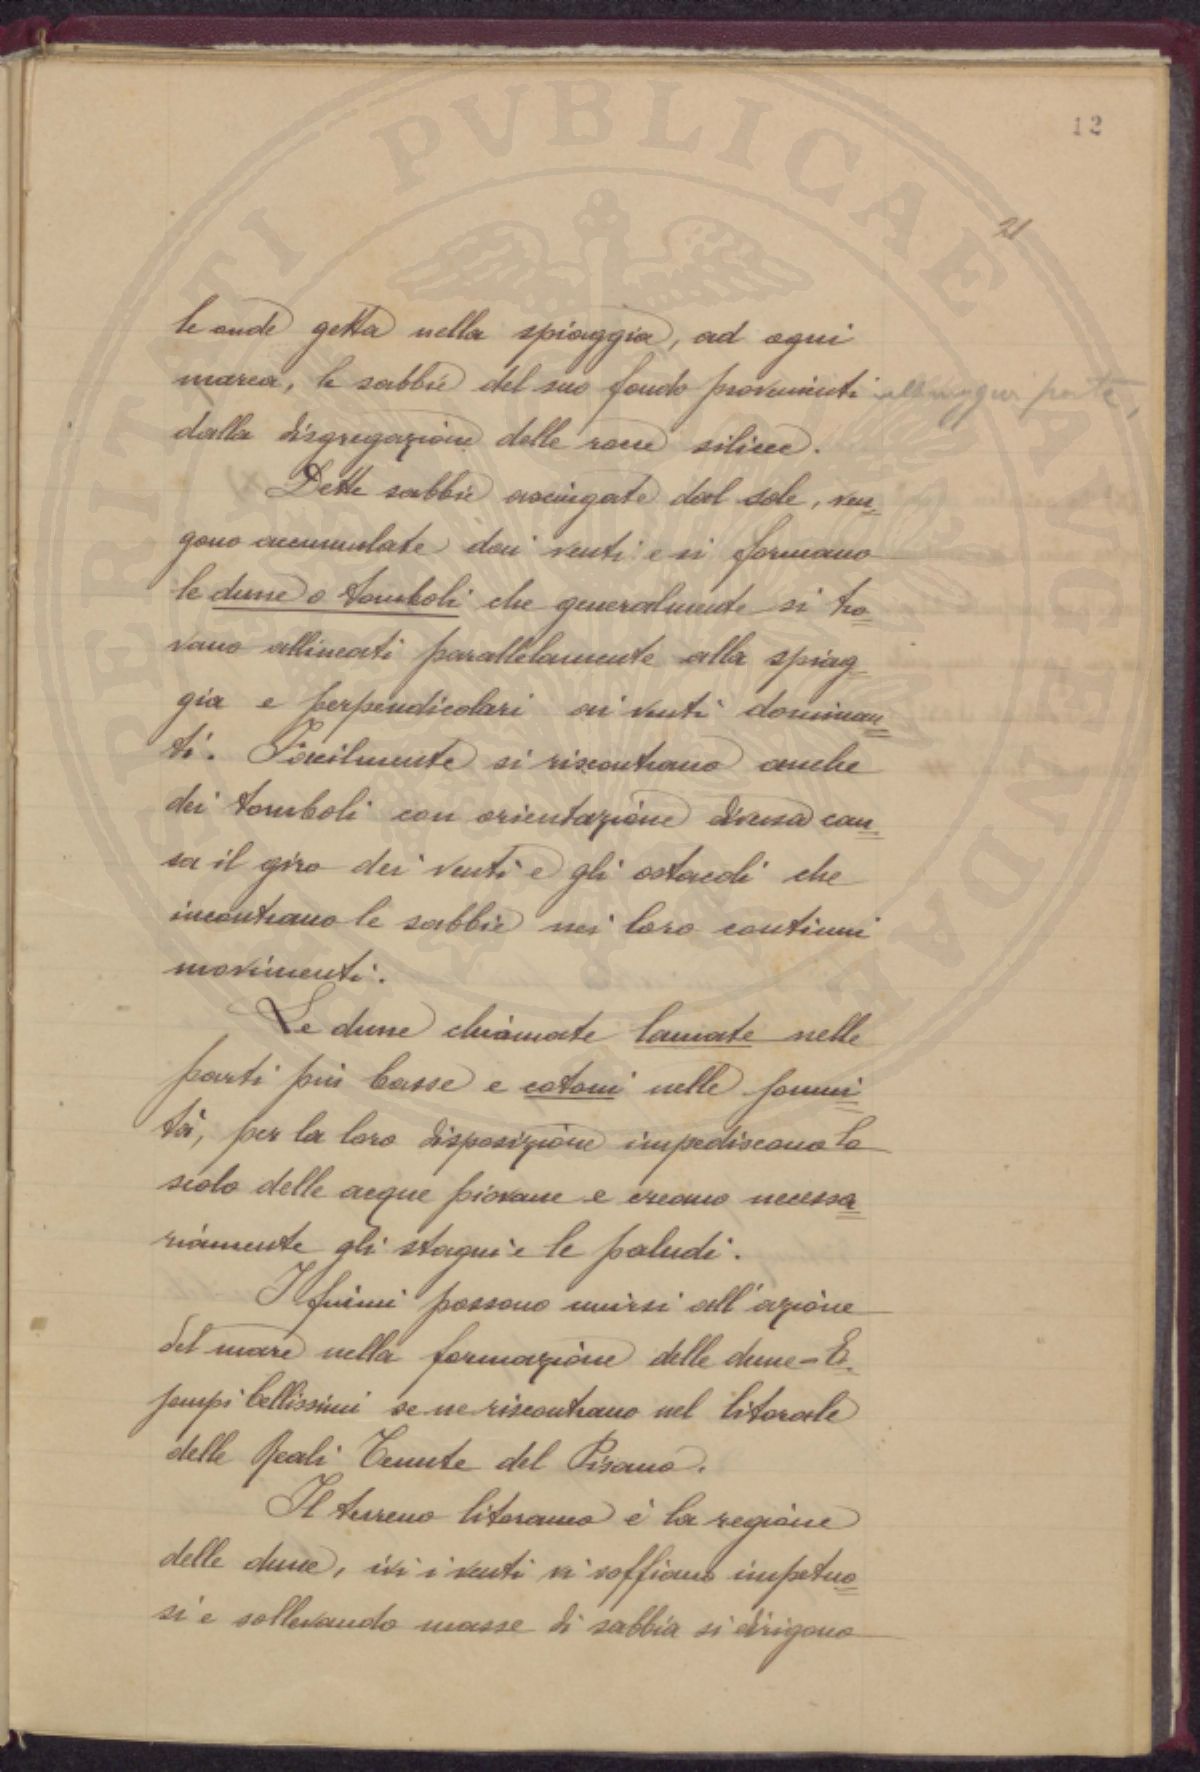 12
21
le onde getta nella spiaggia, ad ogni
marea, le sabbie del suo fondo provenienti alla maggior parte,
dalla disgregazione delle rocce silicee.
Dette sabbie asciugate dal sole, ven-
gono accumulate dai venti e si formano
le dune o tomboli che generalmente si tro-
vano allineati parallelamente alla spiag-
gia e perpendicolari ai venti dominan-
ti. Facilmente si riscontrano anche
dei tomboli con orientazione diversa cau-
sa il giro dei venti e gli ostacoli che
incontrano le sabbie nei loro continui
movimenti.
Le dune chiamate lamate nelle
parti più basse e cotoni nelle sommi-
tà, per la loro disposizione impediscono lo
scolo delle acque piovane e creano necessa-
riamente gli stagni e le paludi.
I fiumi possono unirsi all'azione
del mare nella formazione delle dune - E-
sempi bellissimi se ne riscontrano nel litorale
delle Reali Tenute del Pisano.
Il terreno litoraneo è la regione
delle dune, ivi i venti vi soffiano impetuo-
si e sollevando masse di sabbia si dirigono
PERITATI PVBLICAE AVGENDAE